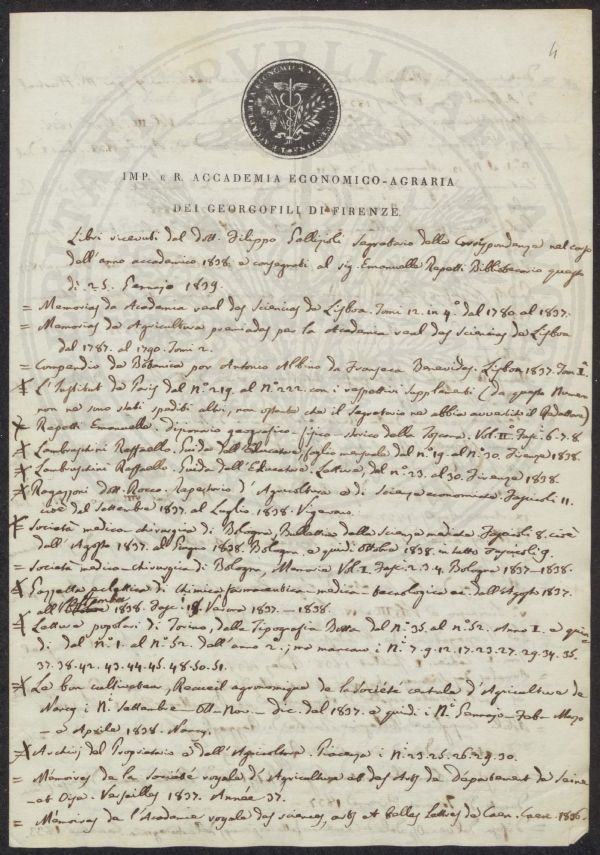 4
IMP. E R. ACCADEMIA ECONOMICO-AGRARIA
DEI GEORGOFILI DI FIRENZE.
Libri ricevuti dal dott. Filippo Gallizioli Segretario della Corrispondenza nel corso
dell'anno accademico 1838. e consegnati al sig. Emanuelle Repetti Bibliotecario questo
di 25. Gennajo 1839.
= Memorias da Academia real das Sciencias de Lisboa. Tomi 12. in 4.º dal 1780. al 1837.
= Memorias de Agricultura premiadas per la Academia real das Sciencias de Lisboa
dal 1787. al 1790. Tomi 2.
= Compendio de Botanica por Antonio Albino da Fonseca Benevides. Lisboa 1837. Tom. I.º
= L'Institut de Paris dal Nº 219. al Nº 222. con i rispettivi supplementi (da questo Numero
non ne sono stati spediti altri, non ostante che il Segretario ne abbia avvertito il Redattore)
= Repetti Emanuelle. dizionario geografico-fisico-storico della Toscana. Vol. II.º Fasc. 6. 7. 8
= Lambruschini Raffaello. Guida dell'Educatore, foglio mensuale dal nº 19. al nº 30. Firenze 1838.
= Lambruschini Raffaello. Guida dell'Educatore. Letture, dal nº 23. al 30. Firenze 1838.
= Ragazzoni dott. Rocco. Repertorio d'Agricoltura e di Scienze economiche. Fascicoli 11.
cioè dal Settembre 1837. al Luglio 1838.
= Società medico-chirurgica di Bologna, Bullettino delle Scienze mediche Fascicoli 8. cioè
dall'Agosto 1837. al Giugno 1838. Bologna. e quindi Ottobre 1838. in tutto Fascicoli 9.
= Società medico-chirurgica di Bologna, Memorie Vol. I. Fasc. 2. 3. 4. Bologna 1837-1838.
= Gazzetta eclettica di Chimica farmaceutica-medica-tecnologica ec. dall'Agosto 1837.
all' 1838. Fasc. 18. Verona 1837. - 1838.
= Letture popolari di Torino, dalla Tipografia Botta dal nº 35. al nº 52. Anno I. e quin-
di dal nº 1. al nº 52. dell'anno 2.º; ne mancano i N.i 7. 9. 12. 17. 23. 27. 29. 34. 35.
37. 38. 42. 43. 44. 45. 48. 50. 51.
= Le bon cultivateur, Recueil agronomique de la Société centrale d'Agriculture de
Nancy i N.i Settembre - Ott. - Nov. - dic. del 1837. e quindi i N.i Gennajo - Feb. - Marzo
- e Aprile 1838. Nancy.
= Archivj del Proprietario e dell'Agricoltore. Piacenza i Nº 23. 25. 26. 29. 30.
= Mémoires de la Société royale d'Agriculture et des Arts du département de Seine
-et Oise. Versailles 1837. Année 37.
= Mémoires de l'Académie royale des sciences, arts et belles lettres de Caen. Caen 1836.